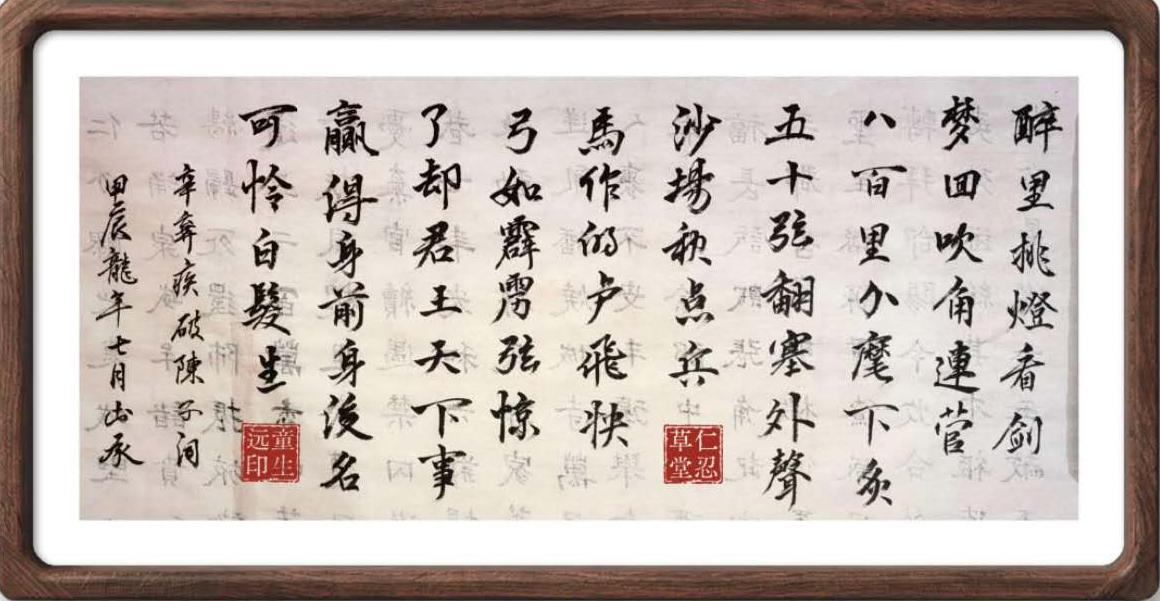 醉里挑燈看劍
梦回吹角連营
八百里分麾下炙
五十弦翻塞外聲
沙場秋点兵
仁忍草堂
馬作的卢飛快
弓如霹雳弦惊
了却君王天下事
贏得身前身後名
可怜白髮生
童生远印
辛弃疾破陳子词
甲辰龍年七月